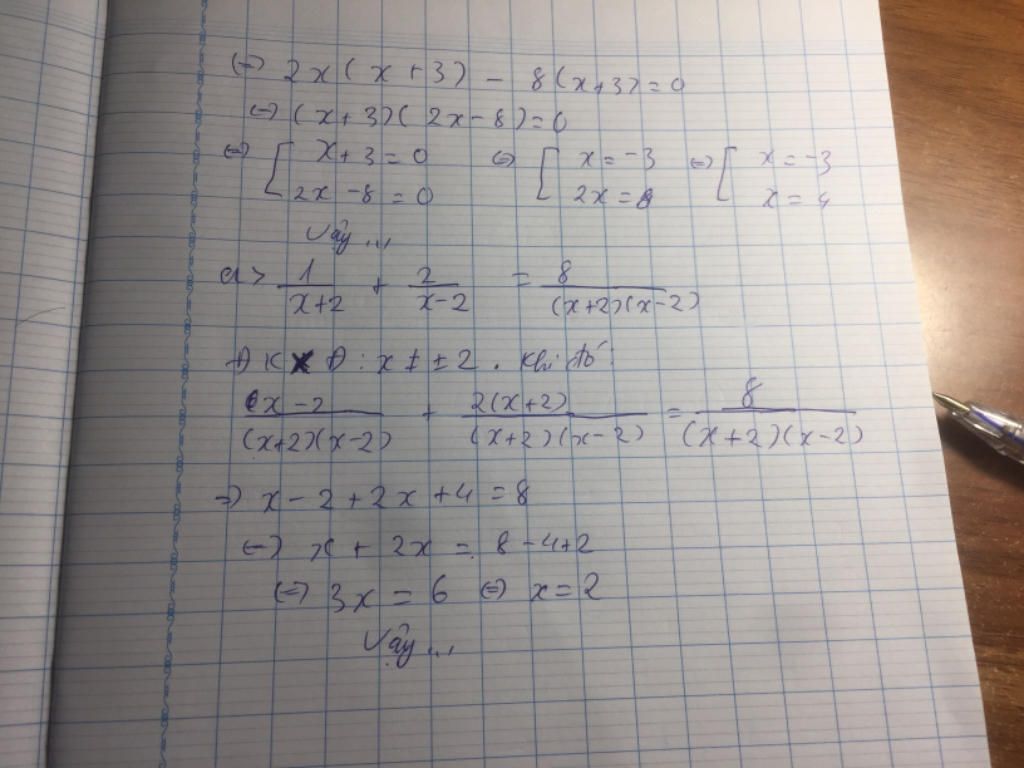 ⇔ 2x(x+3) - 8(x+3) = 0
⇔ (x+3)(2x-8) = 0
⇔ [ x+3 = 0 ; 2x-8 = 0 ⇔ [ x = -3 ; 2x = 8 ⇔ [ x = -3 ; x = 4
Vậy ...
d> 1/(x+2) + 2/(x-2) = 8/((x+2)(x-2))
ĐKXĐ: x ≠ ±2. Khi đó:
(x-2)/((x+2)(x-2)) + 2(x+2)/((x+2)(x-2)) = 8/((x+2)(x-2))
⇒ x-2+2x+4 = 8
⇔ x+2x = 8-4+2
⇔ 3x = 6 ⇔ x = 2
Vậy ...